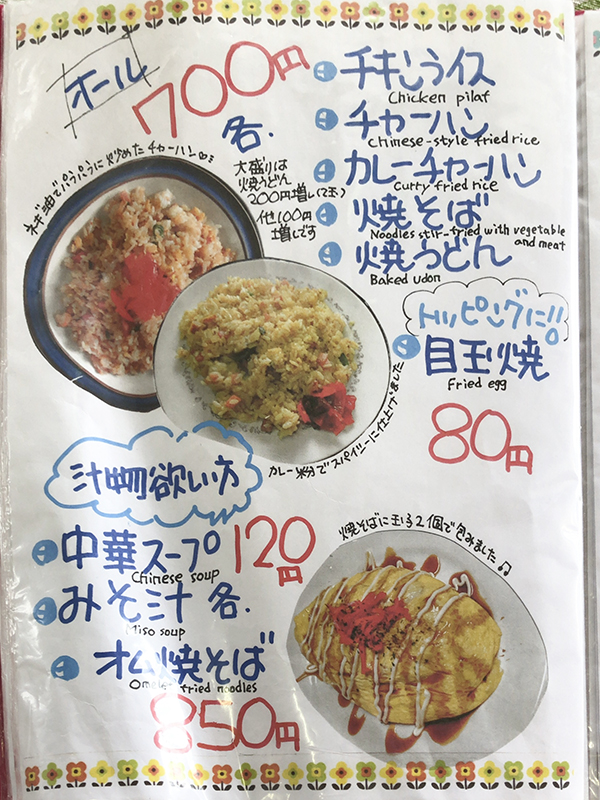 オール
700円
各.
チキンライス
Chicken pilaf
チャーハン
Chinese-style fried rice
カレーチャーハン
Curry fried rice
焼そば
Noodles stir-fried with vegetable
and meat
焼うどん
Baked udon
大盛りは
焼うどん
200円増し(2玉)
他100円
増しです
ネギ油でパラパラに炒めたチャーハン
トッピングに!!
目玉焼
Fried egg
80円
カレー粉でスパイシーに仕上げました
汁物欲しい方
中華スープ
Chinese soup
120円
みそ汁 各.
Miso soup
オム焼そば
Omelet fried noodles
850円
焼そばに玉子2個で包みました♫